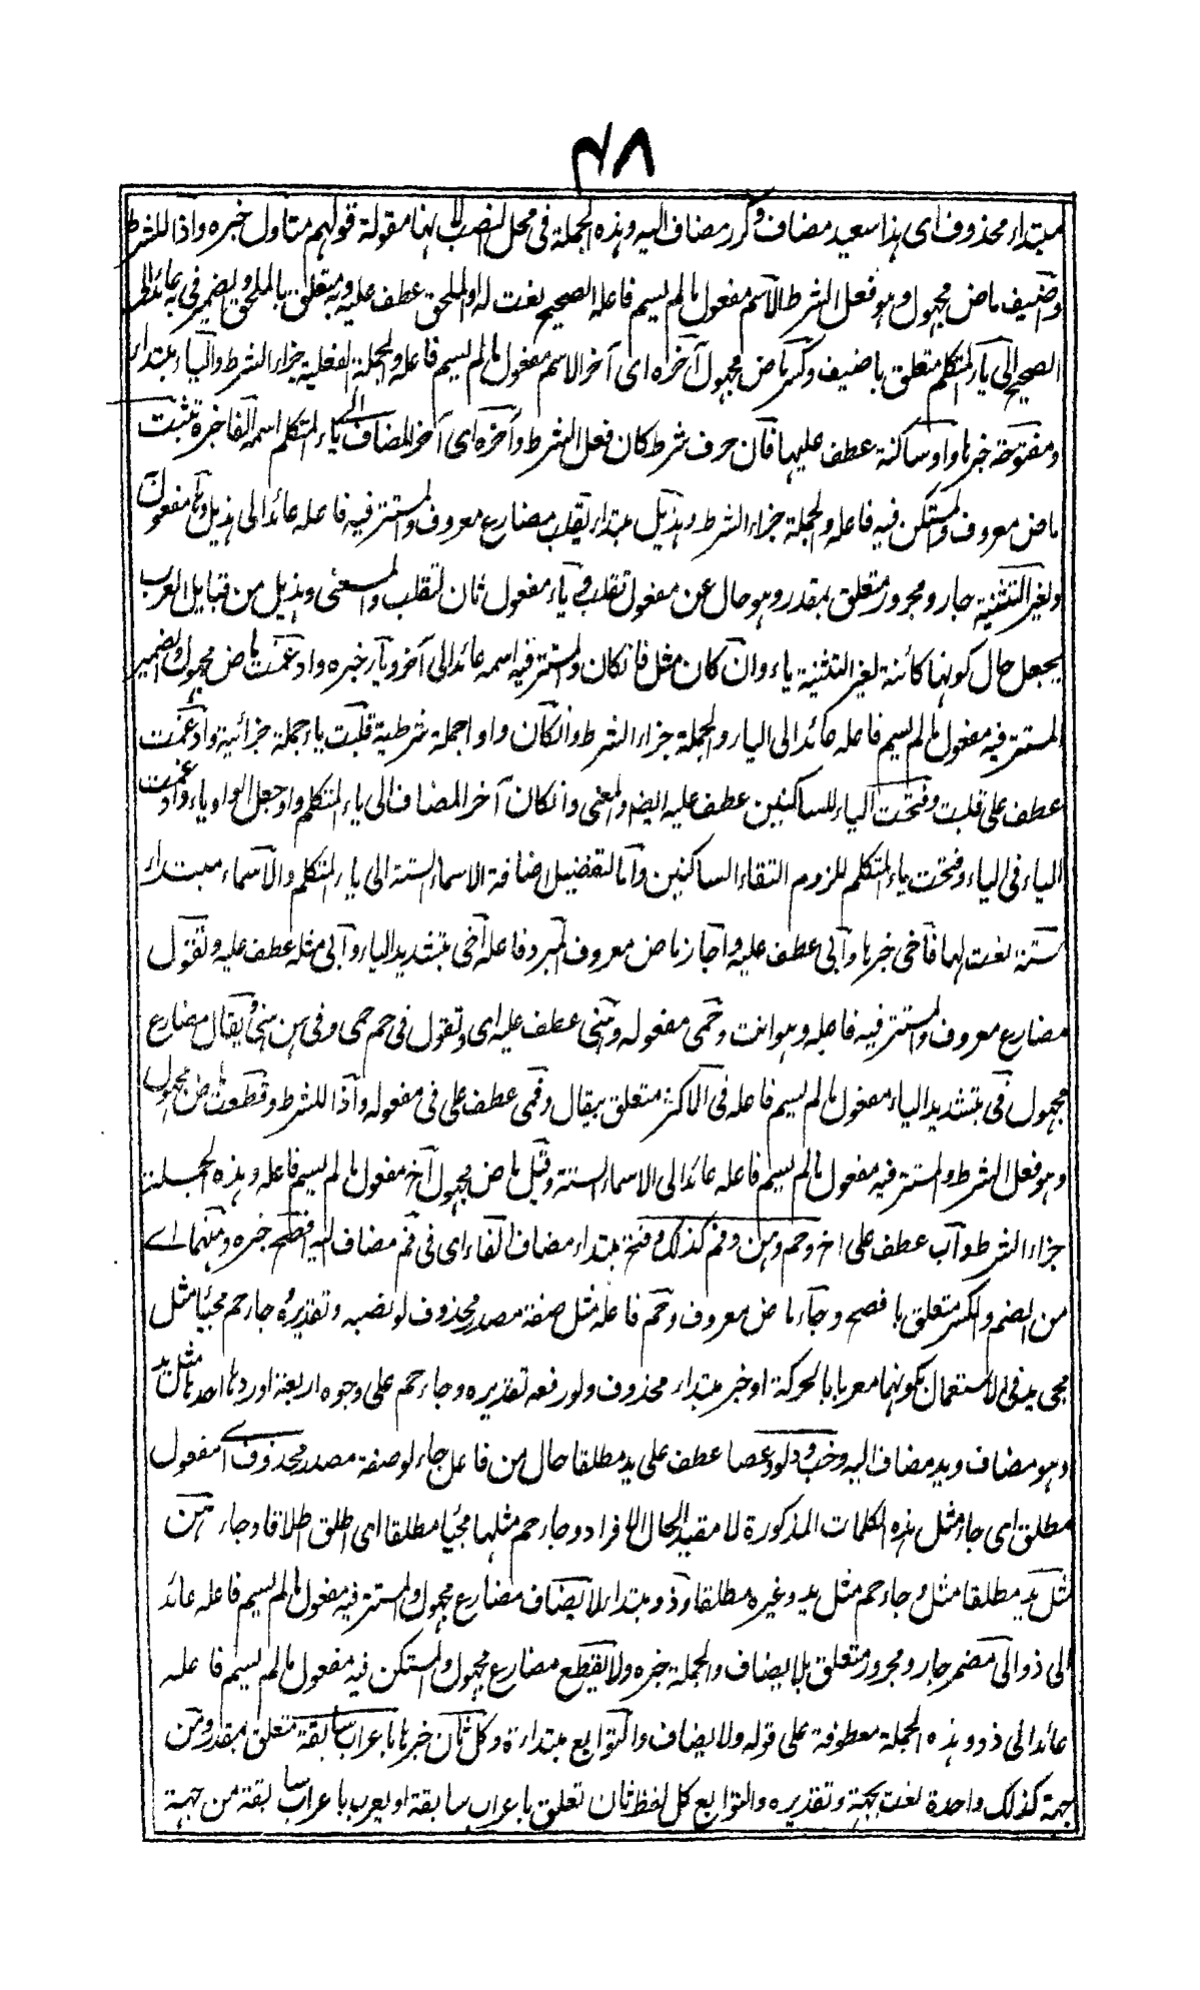 ۴۸
مبتداء محذوف ای هذا سعید مضاف وکرز مضاف الیه وهذه الجملة فی محل النصب لانها مقولة قولهم متاول خبره واذا للشرط
واضیف ماض مجهول وهو فعل الشرط الاسم مفعول مالم یسم فاعله الصحیح نعت له والملحق عطف علیه وبه متعلق بالملحق والضمیر فی به عائد الی
الصحیح الی یاء المتکلم متعلق باضیف وکسر ماض مجهول آخره ای آخر الاسم مفعول مالم یسم فاعله والجملة الفعلیة جزاء الشرط والیاء مبتداء
ومفتوحة خبرها او ساکنة عطف علیها فان حرف شرط کان فعل الشرط وآخره ای آخر المضاف الی یاء المتکلم اسمه الفا خبره تثبت
ماض معروف والمستکن فیه فاعله والجملة جزاء الشرط وهذیل مبتداء یقلب مضارع معروف والمستتر فیه فاعله عائد الی هذیل وها مفعوله
ولغیر التثنیة جار ومجرور متعلق بمقدر وهو حال عن مفعول تقلب ویاء مفعول ثان لتقلب والمعنی وهذیل من قبایل العرب
یجعل حال کونها کائنة لغیر التثنیة یاء وان کان مثل فان کان والمستتر فیه اسمه عائد الی آخر ویاء خبره وادغمت ماض مجهول والضمیر
المستتر فیه مفعول مالم یسم فاعله عائد الی الیاء والجملة جزاء الشرط وانکان واوا جملة شرطیة قلبت یاء جملة جزائیة وادغمت
عطف علی قلبت وفتحت الیاء للساکنین عطف علیه ایضا والمعنی وانکان آخر المضاف الی یاء المتکلم واو جعل الواو یاء وادغمت
الیاء فی الیاء وفتحت یاء المتکلم للزوم التقاء الساکنین واما لتفصیل اضافة الاسماء الستة الی یاء المتکلم والاسماء مبتداء
ستة نعت لها فاخی خبرها وابی عطف علیه واجاز ماض معروف المبرد فاعله اخی بتشدید الیاء وابی مثله عطف علیه وتقول
مضارع معروف والمستتر فیه فاعله وهو انت وحمی مفعوله وهنی عطف علیه ای وتقول فی حم حمی وفی هن هنی ویقال مضارع
مجهول فی بتشدید الیاء مفعول مالم یسم فاعله فی الاکثر متعلق بیقال وفمی عطف علی فی مفعوله واذا للشرط وقطعت ماض مجهول
وهو فعل الشرط والمستتر فیه مفعول مالم یسم فاعله عائد الی الاسماء الستة وقیل ماض مجهول اخ مفعول مالم یسم فاعله وهذه الجملة
جزاء الشرط واب عطف علی اخ وحم وهن وفم کذلک وفتح مبتداء مضاف الفاء ای فی فم مضاف الیه افصح خبره ومنهما اے
من الضم والکسر متعلق بافصح وجاء ماض معروف وحم فاعله مثل صفة مصدر محذوف لو نصبه وتقدیره جاء حم مجیئا مثل
مجی ید فی الاستعمال بکونهما معربا بالحرکة او خبر مبتداء محذوف ولو رفعه تقدیره وجاء حم علی وجوه اربعة اوردها احدها مثل ید
وهو مضاف وید مضاف الیه وخب ودلو وعصا عطف علی ید مطلقا حال من فاعل جاء لو صفة مصدر محذوف ای مفعول
مطلق ای جاء مثل هذه الکلمات المذکورة لا مقید الحال الافراد وجاء حم مثلها مجیئا مطلقا ای اطلق اطلاقا وجاء هن
مثل ید مطلقا مثل وجاء حم مثل ید وغیره مطلقا وذو مبتداء لا یضاف مضارع مجهول والمستتر فیه مفعول مالم یسم فاعله عائد
الی ذو الی مضمر جار ومجرور متعلق بلا یضاف والجملة خبره ولا یقطع مضارع مجهول والمستکن فیه مفعول مالم یسم فاعله
عائد الی ذو وهذه الجملة معطوفة علی قوله ولا یضاف والتوابع مبتداء وکل ثان خبرها باعراب سابقة متعلق بمقدر ومن
جهة کذلک واحدة نعت بجهة وتقدیره والتوابع کل لفظ ثان تعلق باعراب سابقة او یعرب باعراب سابقة من جهة